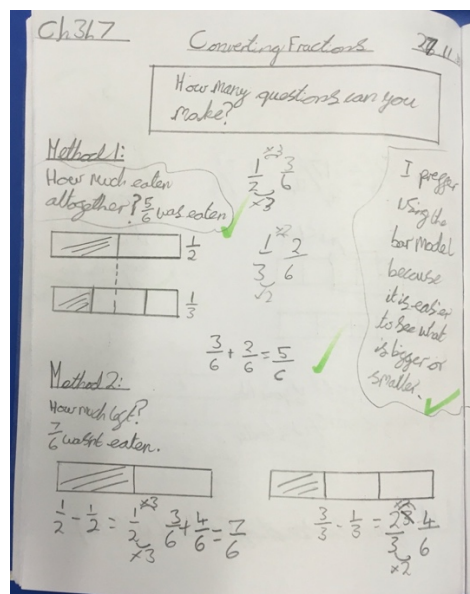 Ch3L7
Converting Fractions
How many questions can you
make?
Method 1:
How much eaten
altogether? 5/6 was eaten
1/2
1/3
×3
1/2 3/6
×3
×2
1/3 2/6
×2
3/6 + 2/6 = 5/6
I pregger
using the
bar model
because
it is easier
to see what
is bigger or
smaller.
Method 2:
How much left?
7/6 wasnt eaten.
1/2 - 1/2 = 1/2 3/6 + 4/6 = 7/6
×3
×3
3/3 - 1/3 = 2/3 4/6
×2